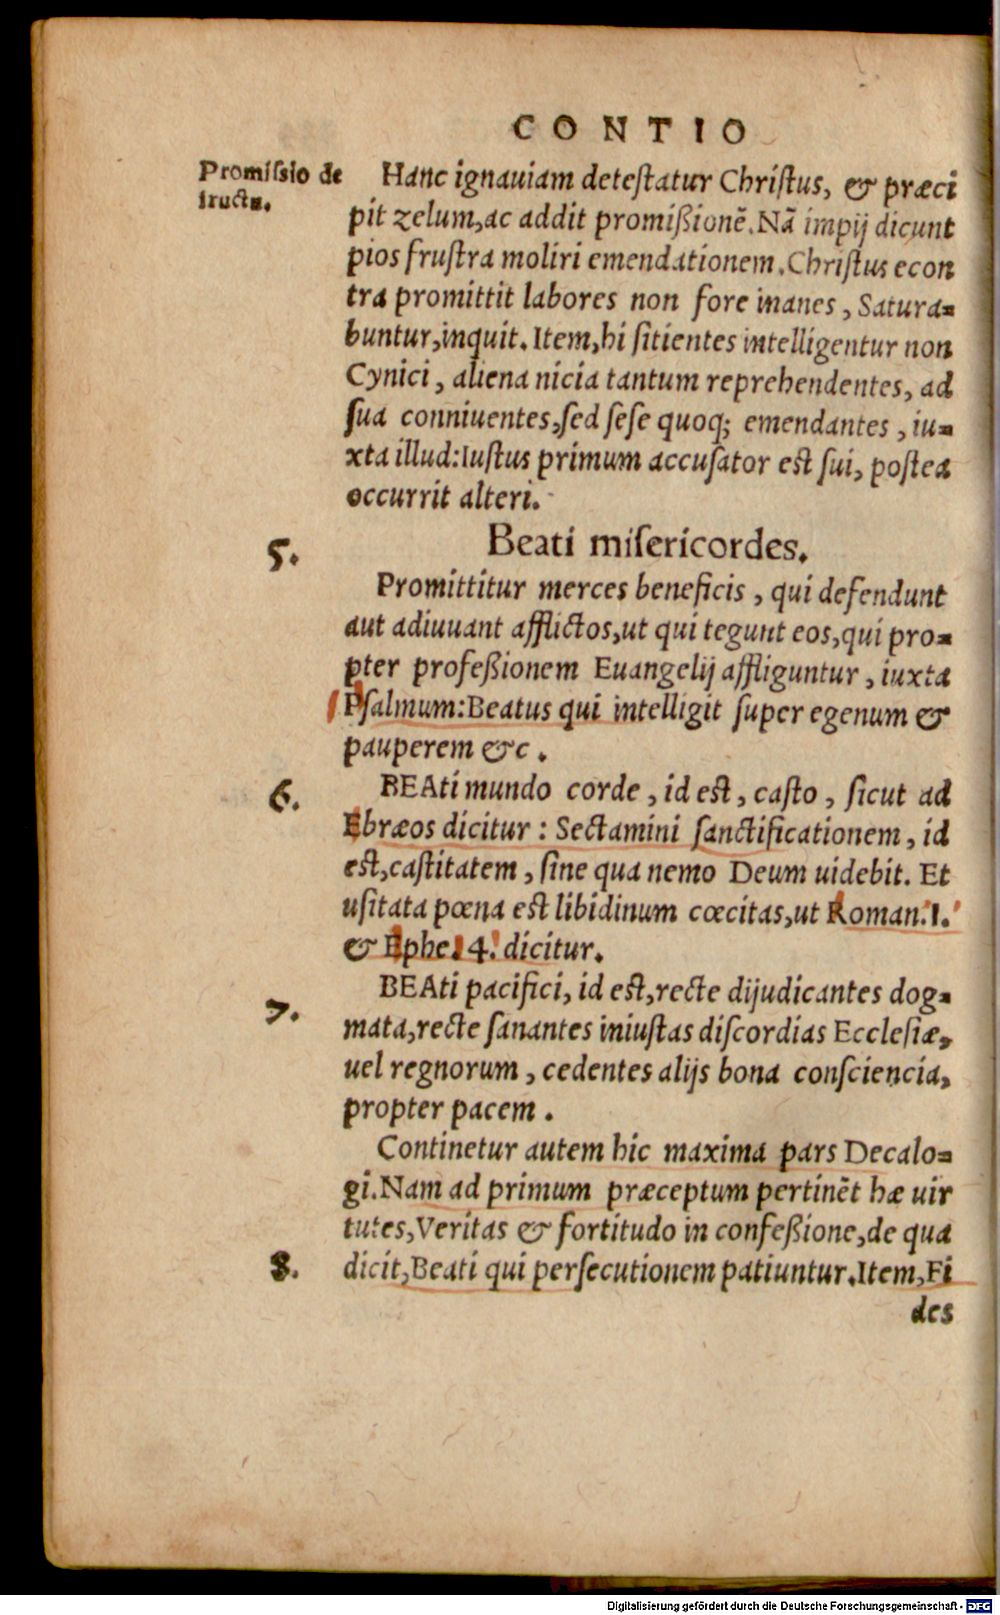 CONTIO
Promissio de
fructu.
Hanc ignauiam detestatur Christus, & præci
pit zelum, ac addit promißionē. Nā impij dicunt
pios frustra moliri emendationem. Christus econ
tra promittit labores non fore inanes, Satura-
buntur, inquit. Item, hi sitientes intelligentur non
Cynici, aliena nicia tantum reprehendentes, ad
sua conniuentes, sed sese quoq; emendantes, iu-
xta illud: Iustus primum accusator est sui, postea
occurrit alteri.
5.
Beati misericordes.
Promittitur merces beneficis, qui defendunt
aut adiuuant afflictos, ut qui tegunt eos, qui pro-
pter profeßionem Euangelij affliguntur, iuxta
Psalmum: Beatus qui intelligit super egenum &
pauperem &c.
6.
BEAti mundo corde, id est, casto, sicut ad
Ebræos dicitur: Sectamini sanctificationem, id
est, castitatem, sine qua nemo Deum uidebit. Et
usitata pœna est libidinum cœcitas, ut Roman. 1.
& Ephe. 4. dicitur.
7.
BEAti pacifici, id est, recte dijudicantes dog-
mata, recte sanantes iniustas discordias Ecclesiæ,
uel regnorum, cedentes alijs bona consciencia,
propter pacem.
Continetur autem hic maxima pars Decalo-
gi. Nam ad primum præceptum pertinēt hæ uir
tutes, Veritas & fortitudo in confeßione, de qua
8.
dicit, Beati qui persecutionem patiuntur. Item, Fi
des
Digitalisierung gefördert durch die Deutsche Forschungsgemeinschaft - DFG